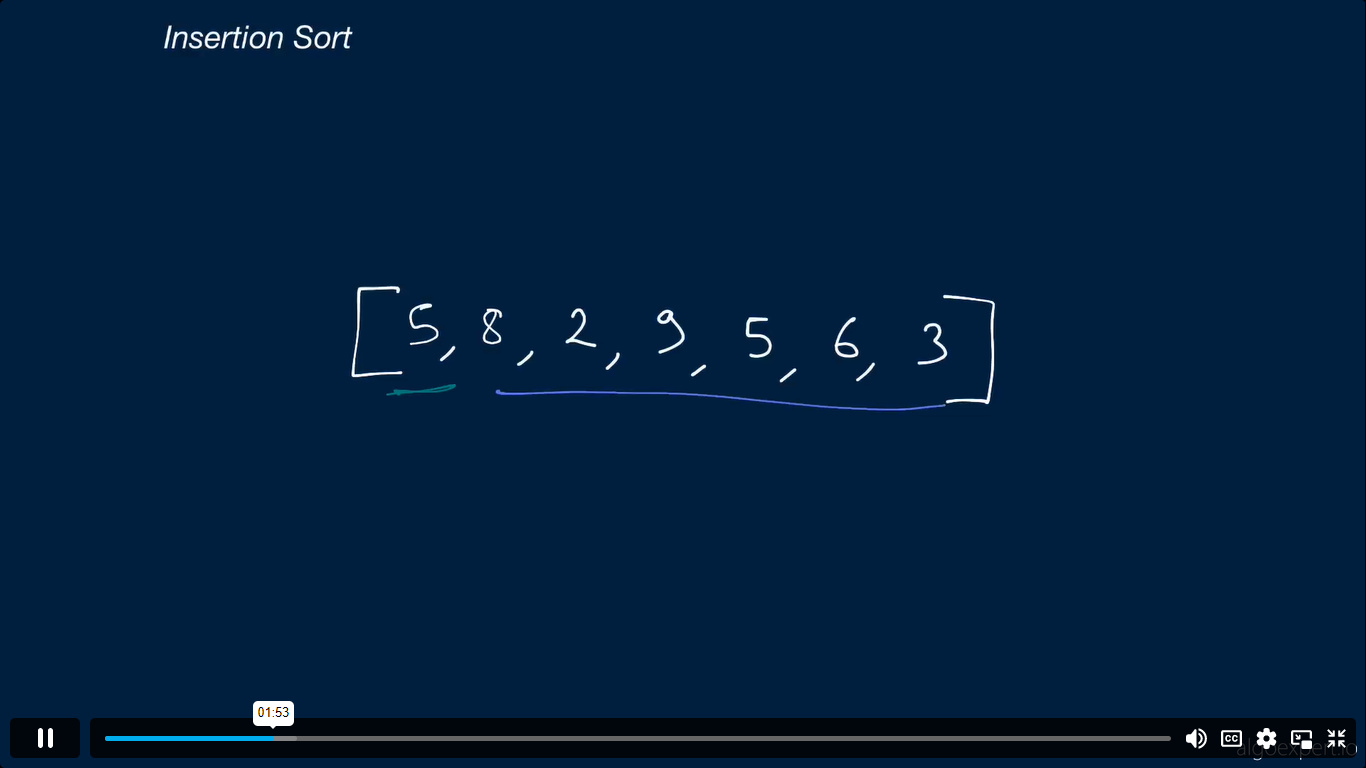 Insertion Sort
[5, 8, 2, 9, 5, 6, 3]
01:53
CC
algoexpert.io